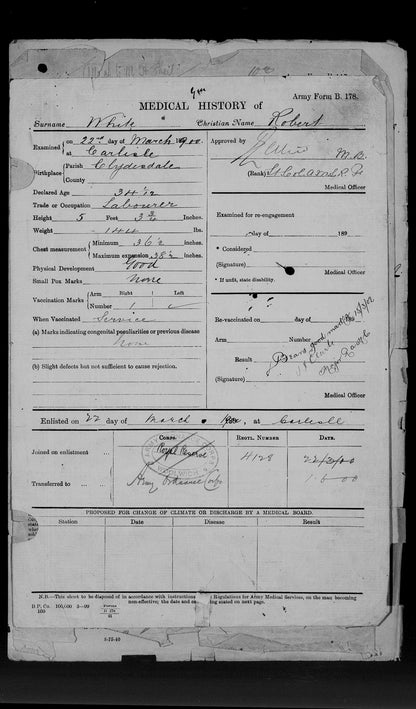 Army Form B. 178.
MEDICAL HISTORY of
Surname White Christian Name Robert
Examined on 22nd day of March 1900
at Carlisle
Birthplace Parish Clydesdale
County
Declared Age 34 1/12
Trade or Occupation Labourer
Height 5 Feet 3 3/4 Inches.
Weight 144 lbs.
Chest measurement Minimum 36 1/2 inches.
Maximum expansion 38 1/2 inches.
Physical Development Good
Small Pox Marks None
Vaccination Marks Arm Right Left
Number 1
When Vaccinated Service
(a) Marks indicating congenital peculiarities or previous disease
None
(b) Slight defects but not sufficient to cause rejection.
Approved by
M.B.
(Rank) Lt. Col.
Medical Officer
Examined for re-engagement
day of 189
* Considered
(Signature)
Medical Officer
* If unfit, state disability.
Re-vaccinated on day of
Arm Number
Result Bears good marks
(Signature)
Medical Officer
Enlisted on 22 day of March 1900, at Carlisle
Corps. Regtl. Number Date.
Joined on enlistment Royal Reserve 4128 22/3/00
Transferred to Army Ordnance Corps 1-5-00
WOOLWICH
PROPOSED FOR CHANGE OF CLIMATE OR DISCHARGE BY A MEDICAL BOARD.
Station Date Disease Result
N.B.—This sheet to be disposed of in accordance with instructions Regulations for Army Medical Services, on the man becoming
non-effective; the date and ing stated on next page.